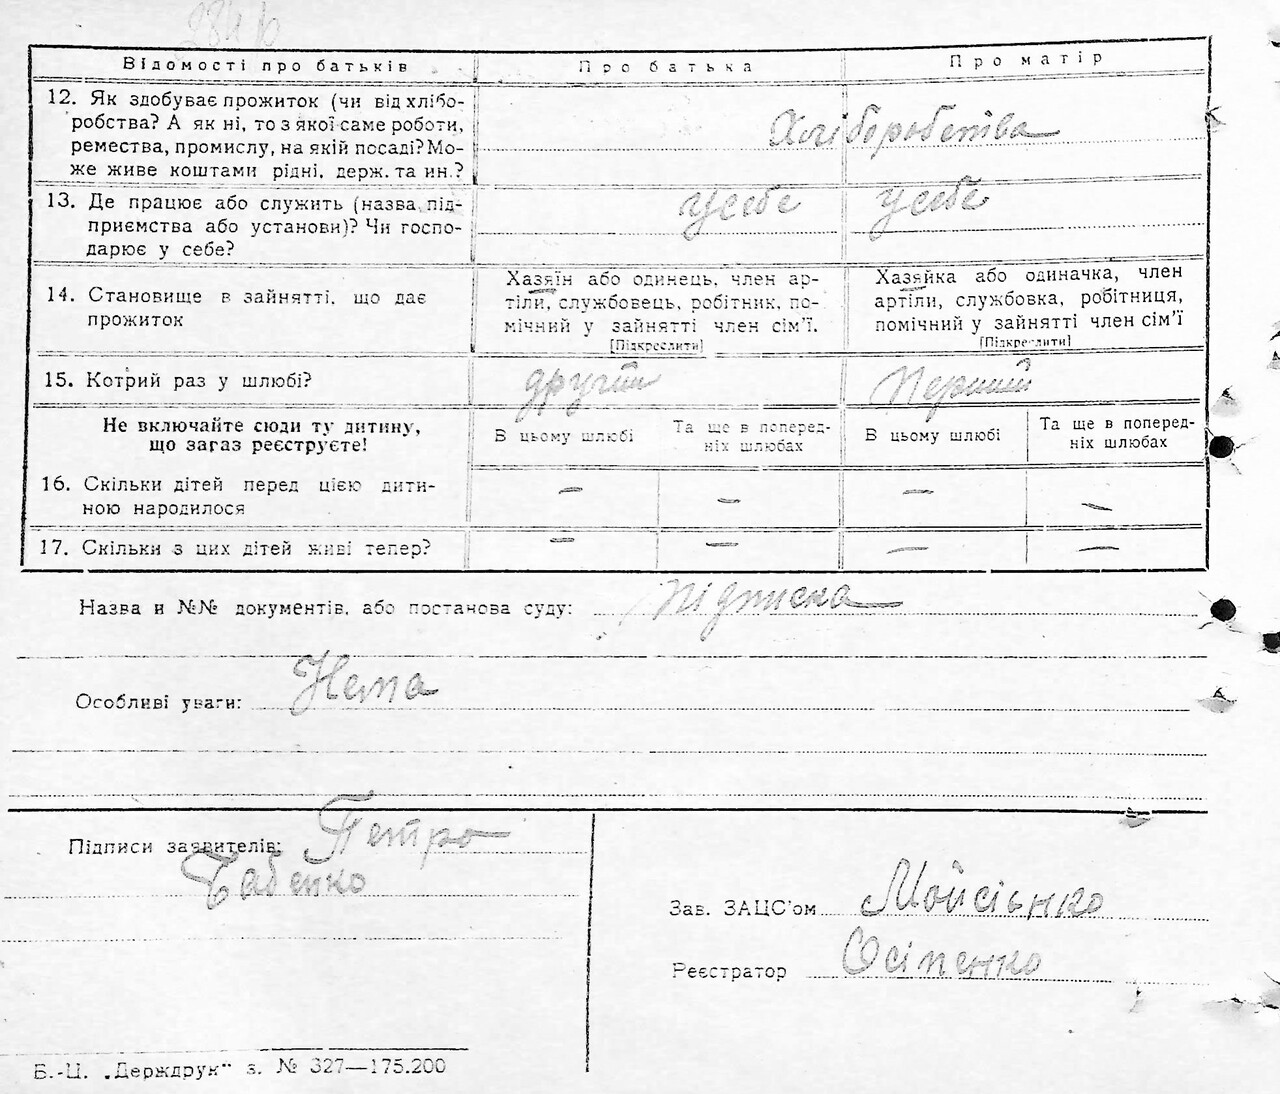 Відомості про батьків Про батька Про матір
12. Як здобуває прожиток (чи від хлібо-
робства? А як ні, то з якої саме роботи,
ремества, промислу, на якій посаді? Мо-
же живе коштами рідні, держ. та ин.?
Хліборобства
13. Де працює або служить (назва під-
приємства або установи)? Чи госпо-
дарює у себе?
у себе у себе
14. Становище в зайнятті, що дає
прожиток
Хазяїн або одинець, член ар-
тіли, службовець, робітник, по-
мічний у зайнятті член сім'ї.
[Підкреслити]
Хазяйка або одиначка, член
артіли, службовка, робітниця,
помічний у зайнятті член сім'ї
[Підкреслити]
15. Котрий раз у шлюбі? другий Перший
Не включайте сюди ту дитину,
що загаз реєструєте!
В цьому шлюбі Та ще в поперед-
ніх шлюбах
В цьому шлюбі Та ще в поперед-
ніх шлюбах
16. Скільки дітей перед цією дити-
ною народилося
– – – –
17. Скільки з цих дітей живі тепер? – – – –
Назва и №№ документів, або постанова суду: Підписка
Особливі уваги: Нема
Підписи заявителів: Петро
Бабенко
Зав. ЗАЦС'ом Мойсієнко
Реєстратор Осіпенко
Б.-Ц. „Держдрук" з. № 327—175.200